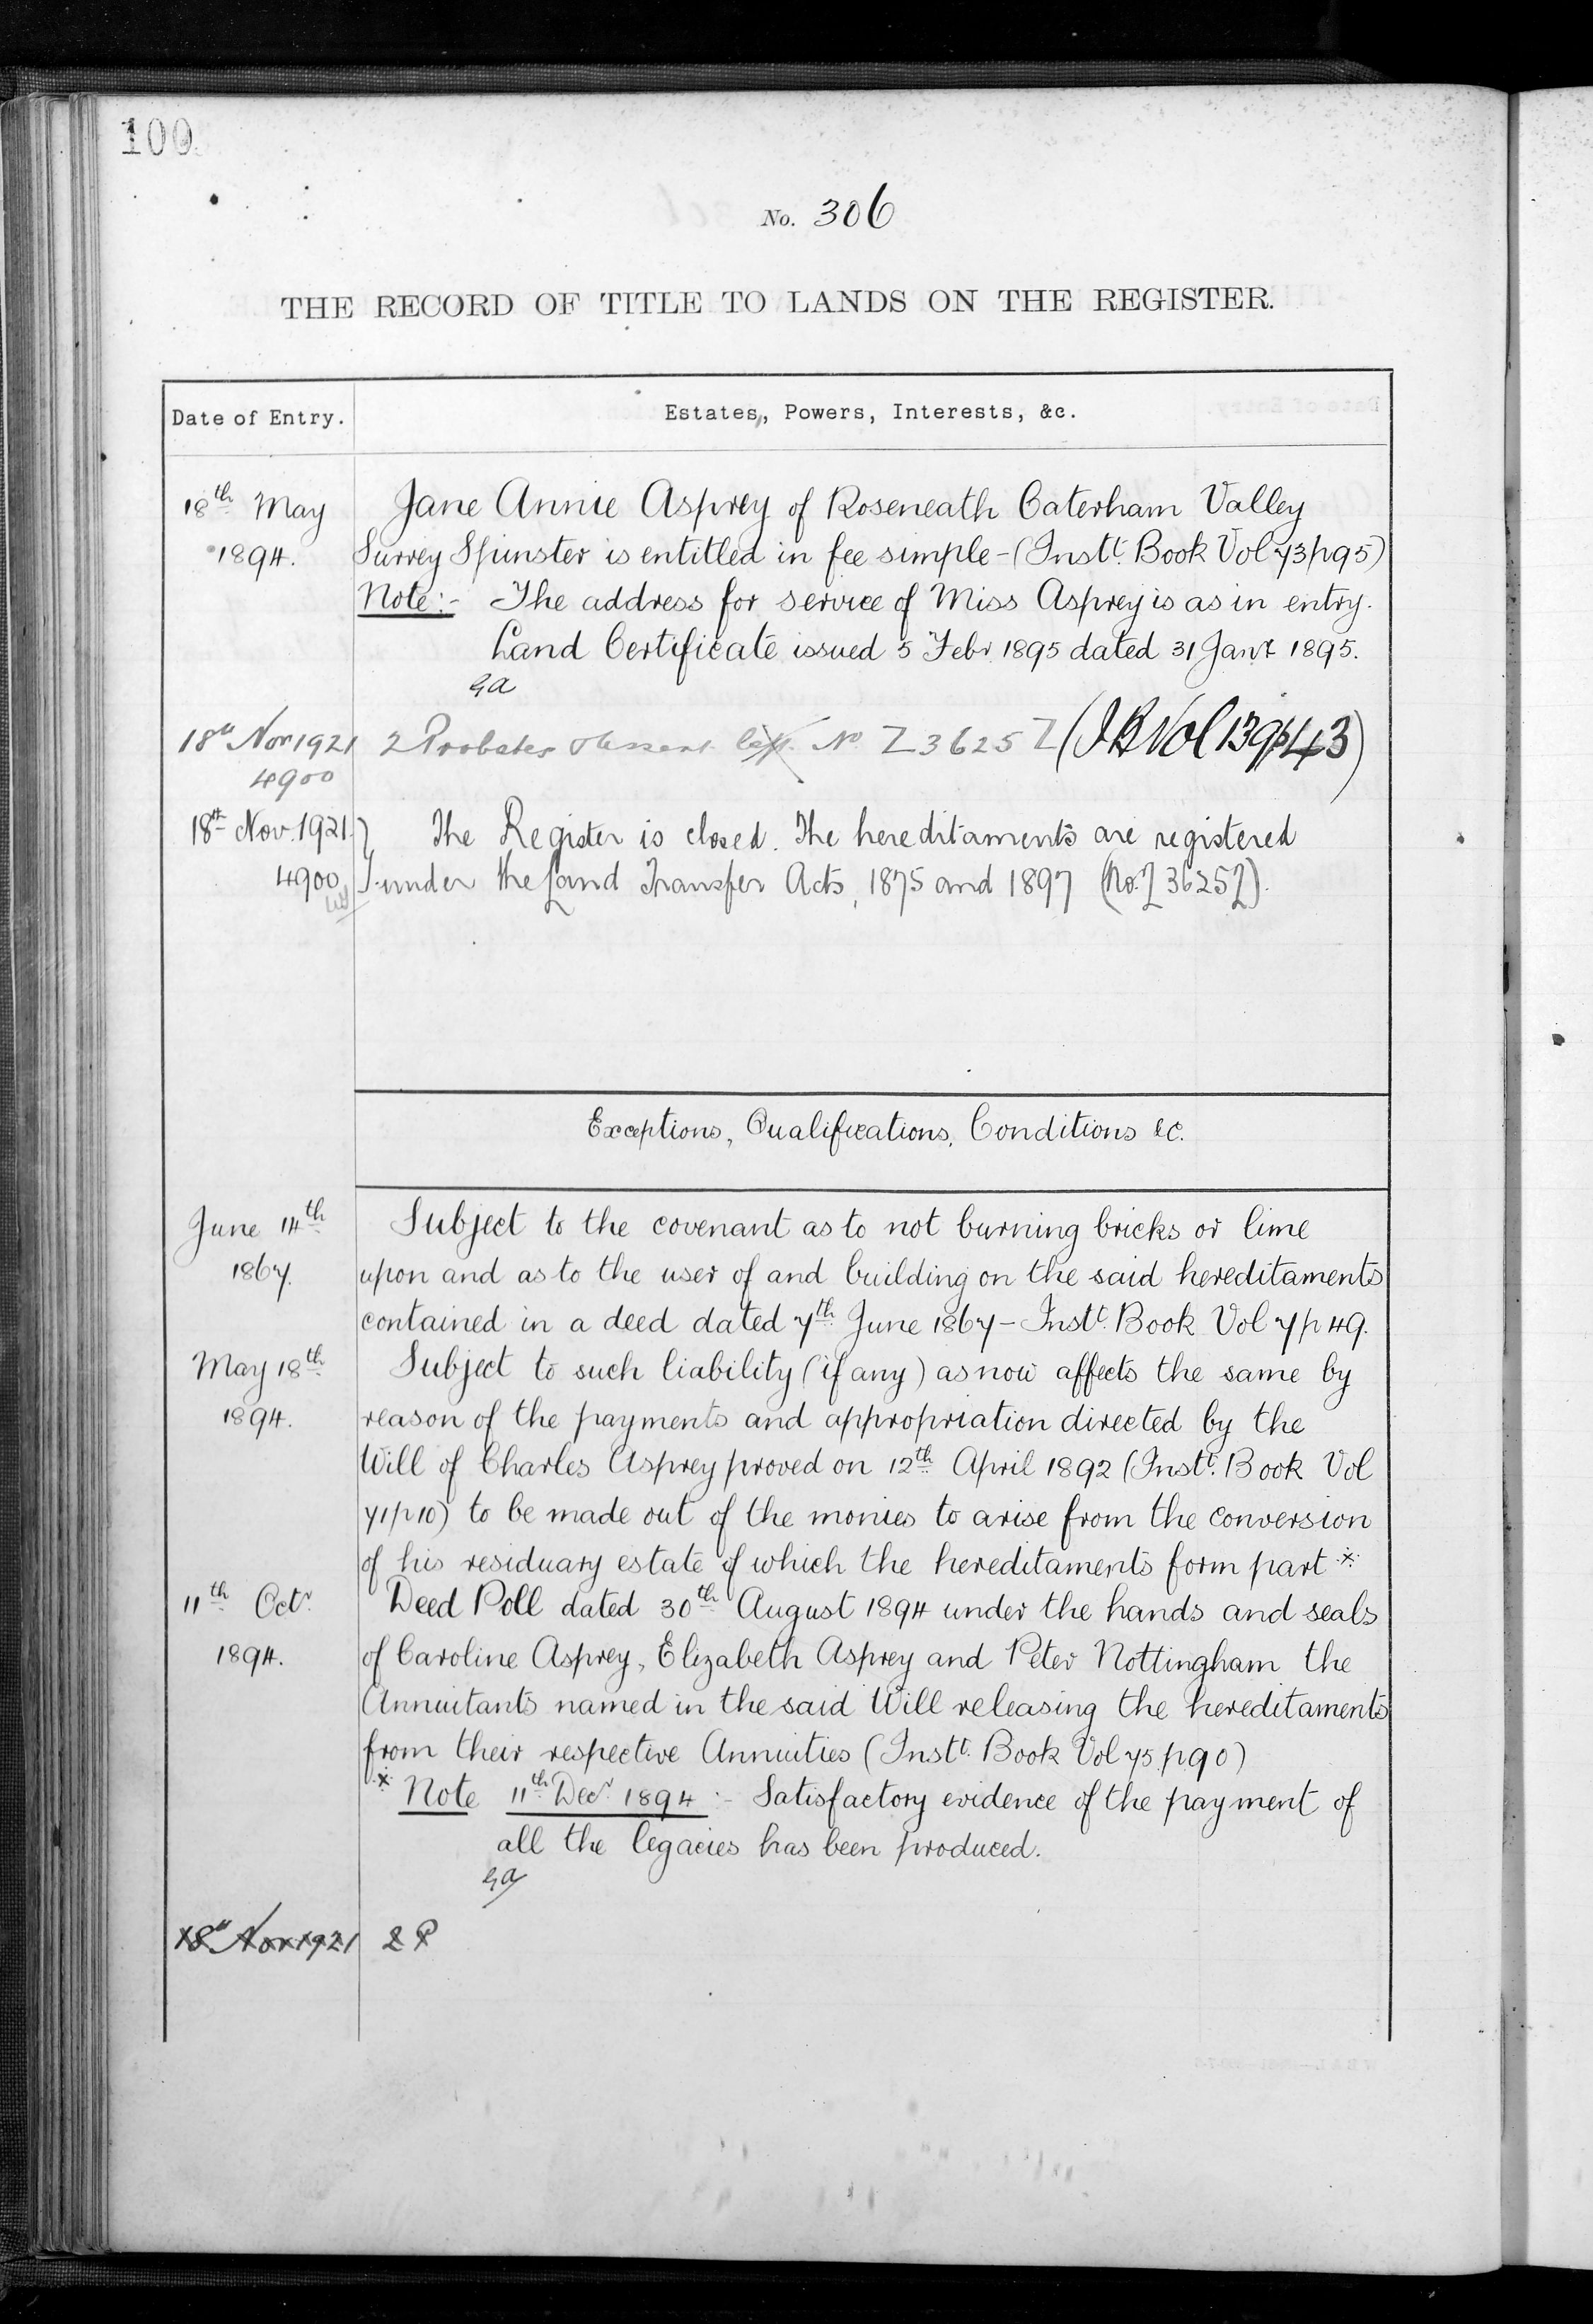 100
No. 306
THE RECORD OF TITLE TO LANDS ON THE REGISTER.
Date of Entry. Estates, Powers, Interests, &c.
18th May Jane Annie Asprey of Roseneath Caterham Valley
1894. Surrey Spinster is entitled in fee simple - (Instt. Book Vol 73 p 95)
Note:- The address for service of Miss Asprey is as in entry.
Land Certificate issued 5 Febr 1895 dated 31 Jany 1895.
18th Nov 1921 2 Probates & Assent No Z 3625 Z (I B Vol 139 p 43)
4900
18th Nov. 1921. The Register is closed. The hereditaments are registered
4900 under the Land Transfer Acts, 1875 and 1897 (No. Z 3625 Z).
Exceptions, Qualifications, Conditions &c.
June 14th Subject to the covenant as to not burning bricks or lime
1867. upon and as to the user of and building on the said hereditaments
contained in a deed dated 7th June 1867 - Instt. Book Vol 7 p 49.
May 18th Subject to such liability (if any) as now affects the same by
1894. reason of the payments and appropriation directed by the
Will of Charles Asprey proved on 12th April 1892 (Instt. Book Vol
71 p 10) to be made out of the monies to arise from the conversion
of his residuary estate of which the hereditaments form part *
11th Octr. Deed Poll dated 30th August 1894 under the hands and seals
1894. of Caroline Asprey, Elizabeth Asprey and Peter Nottingham the
Annuitants named in the said Will releasing the hereditaments
from their respective Annuities (Instt. Book Vol 75 p 90)
* Note 11th Decr. 1894 :- Satisfactory evidence of the payment of
all the legacies has been produced.
18th Nov 1921 2 P